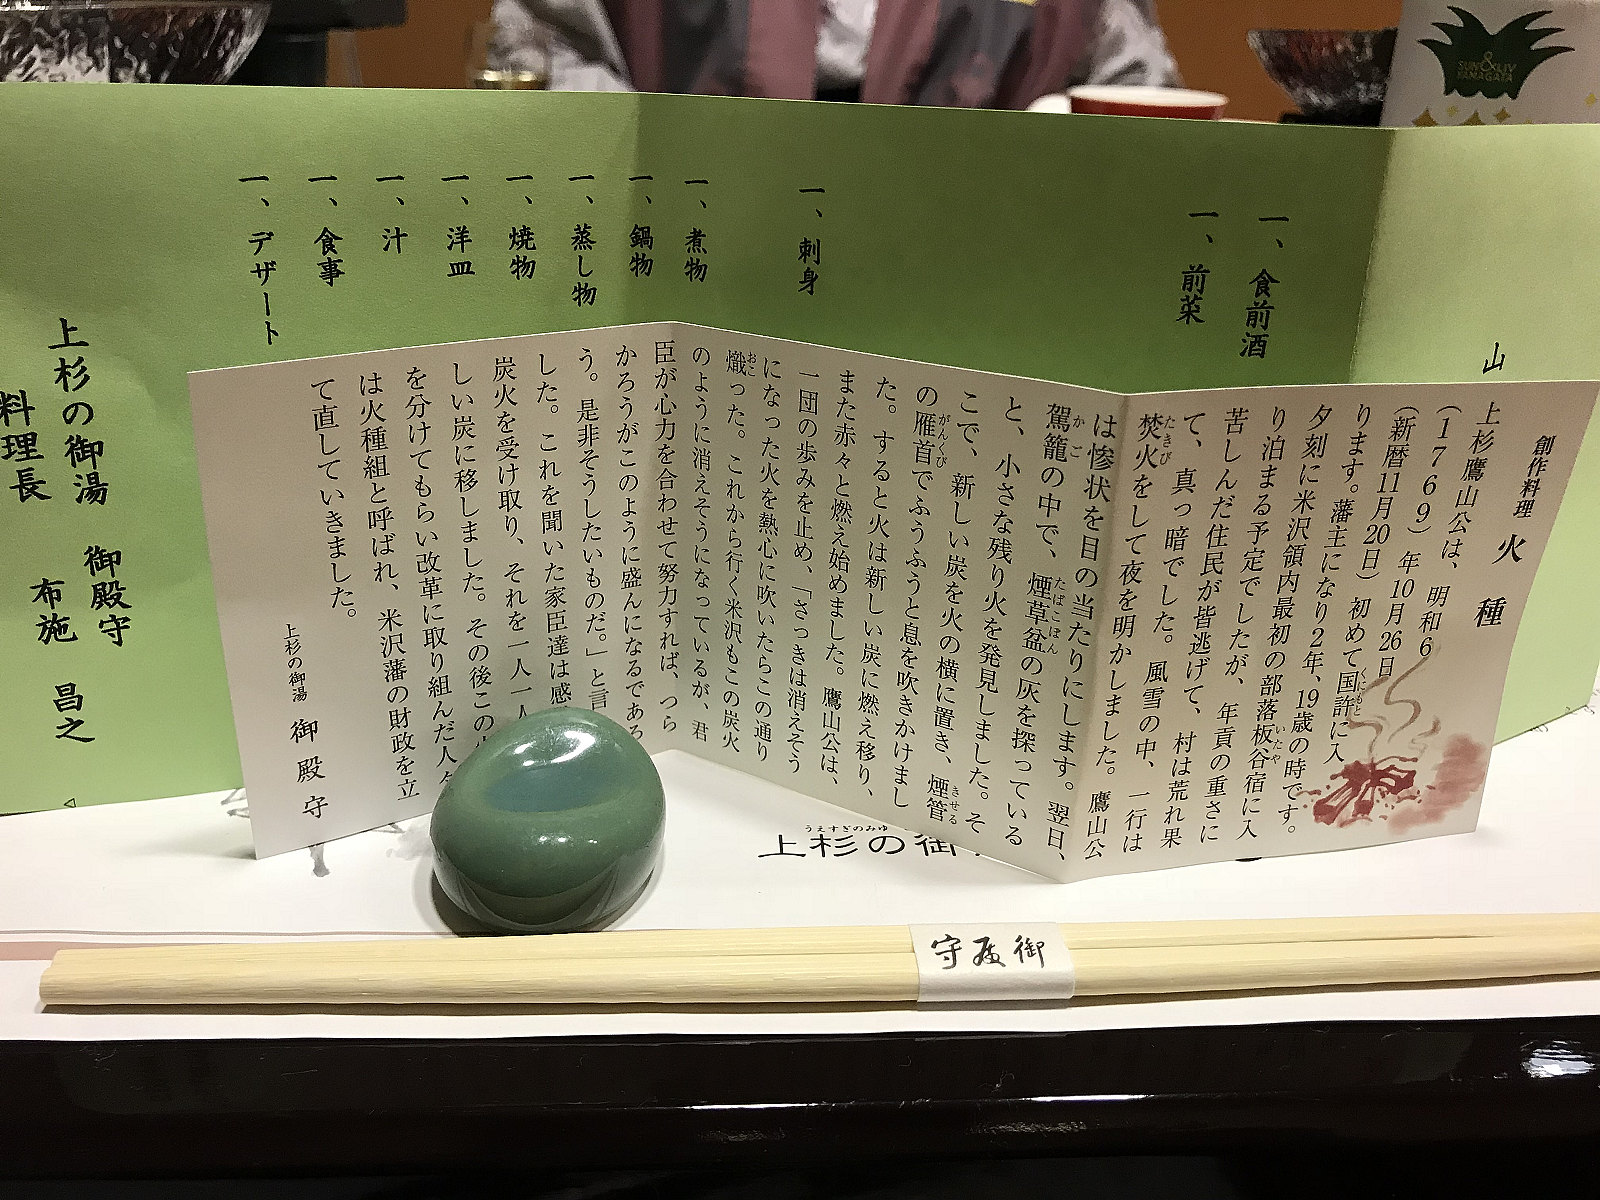 SUN&LIV
YAMAGATA
山
一、食前酒
一、前菜
一、刺身
一、煮物
一、鍋物
一、蒸し物
一、焼物
一、洋皿
一、汁
一、食事
一、デザート
上杉の御湯 御殿守
料理長 布施 昌之
創作料理 火種
上杉鷹山公は、明和6
(1769)年10月26日
(新暦11月20日)初めて国許に入
ります。藩主になり2年、19歳の時です。
夕刻に米沢領内最初の部落板谷宿に入
り泊まる予定でしたが、年貢の重さに
苦しんだ住民が皆逃げて、村は荒れ果
て、真っ暗でした。風雪の中、一行は
焚火をして夜を明かしました。鷹山公
は惨状を目の当たりにします。翌日、
駕籠の中で、煙草盆の灰を探っている
と、小さな残り火を発見しました。そ
こで、新しい炭を火の横に置き、煙管
の雁首でふうふうと息を吹きかけまし
た。すると火は新しい炭に燃え移り、
また赤々と燃え始めました。鷹山公は、
一団の歩みを止め、「さっきは消えそう
になった火を熱心に吹いたらこの通り
熾った。これから行く米沢もこの炭火
のように消えそうになっているが、君
臣が心力を合わせて努力すれば、つら
かろうがこのように盛んになるである
う。是非そうしたいものだ。」と言
した。これを聞いた家臣達は感
炭火を受け取り、それを一人一人
しい炭に移しました。その後この
を分けてもらい改革に取り組んだ人
は火種組と呼ばれ、米沢藩の財政を立
て直していきました。
上杉の御湯 御殿守
うえすぎのみゆ
上杉の御
御殿守